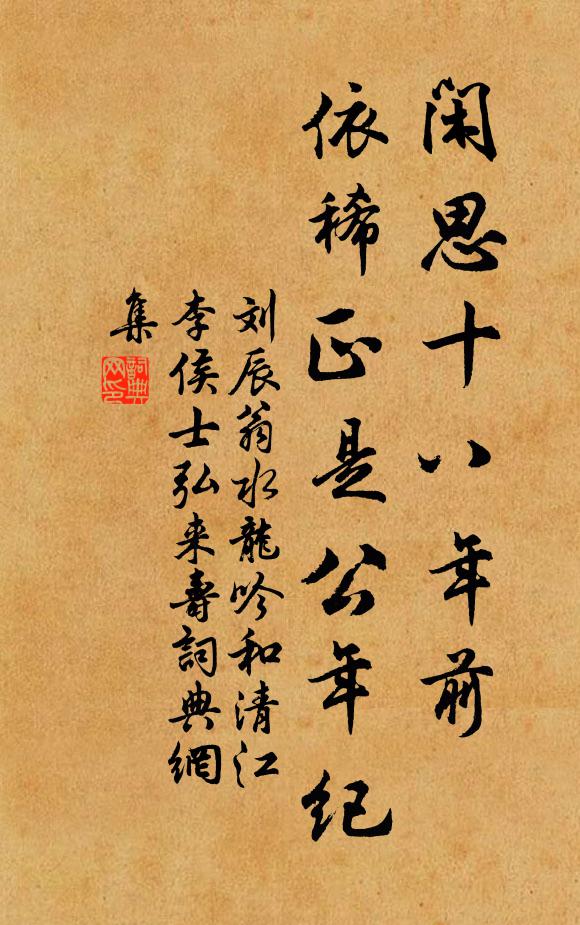 闲思十八年前
依稀正是公年纪
刘辰翁水龍吟和清江
李侯士弘来寿詞典網
集
詞典網印